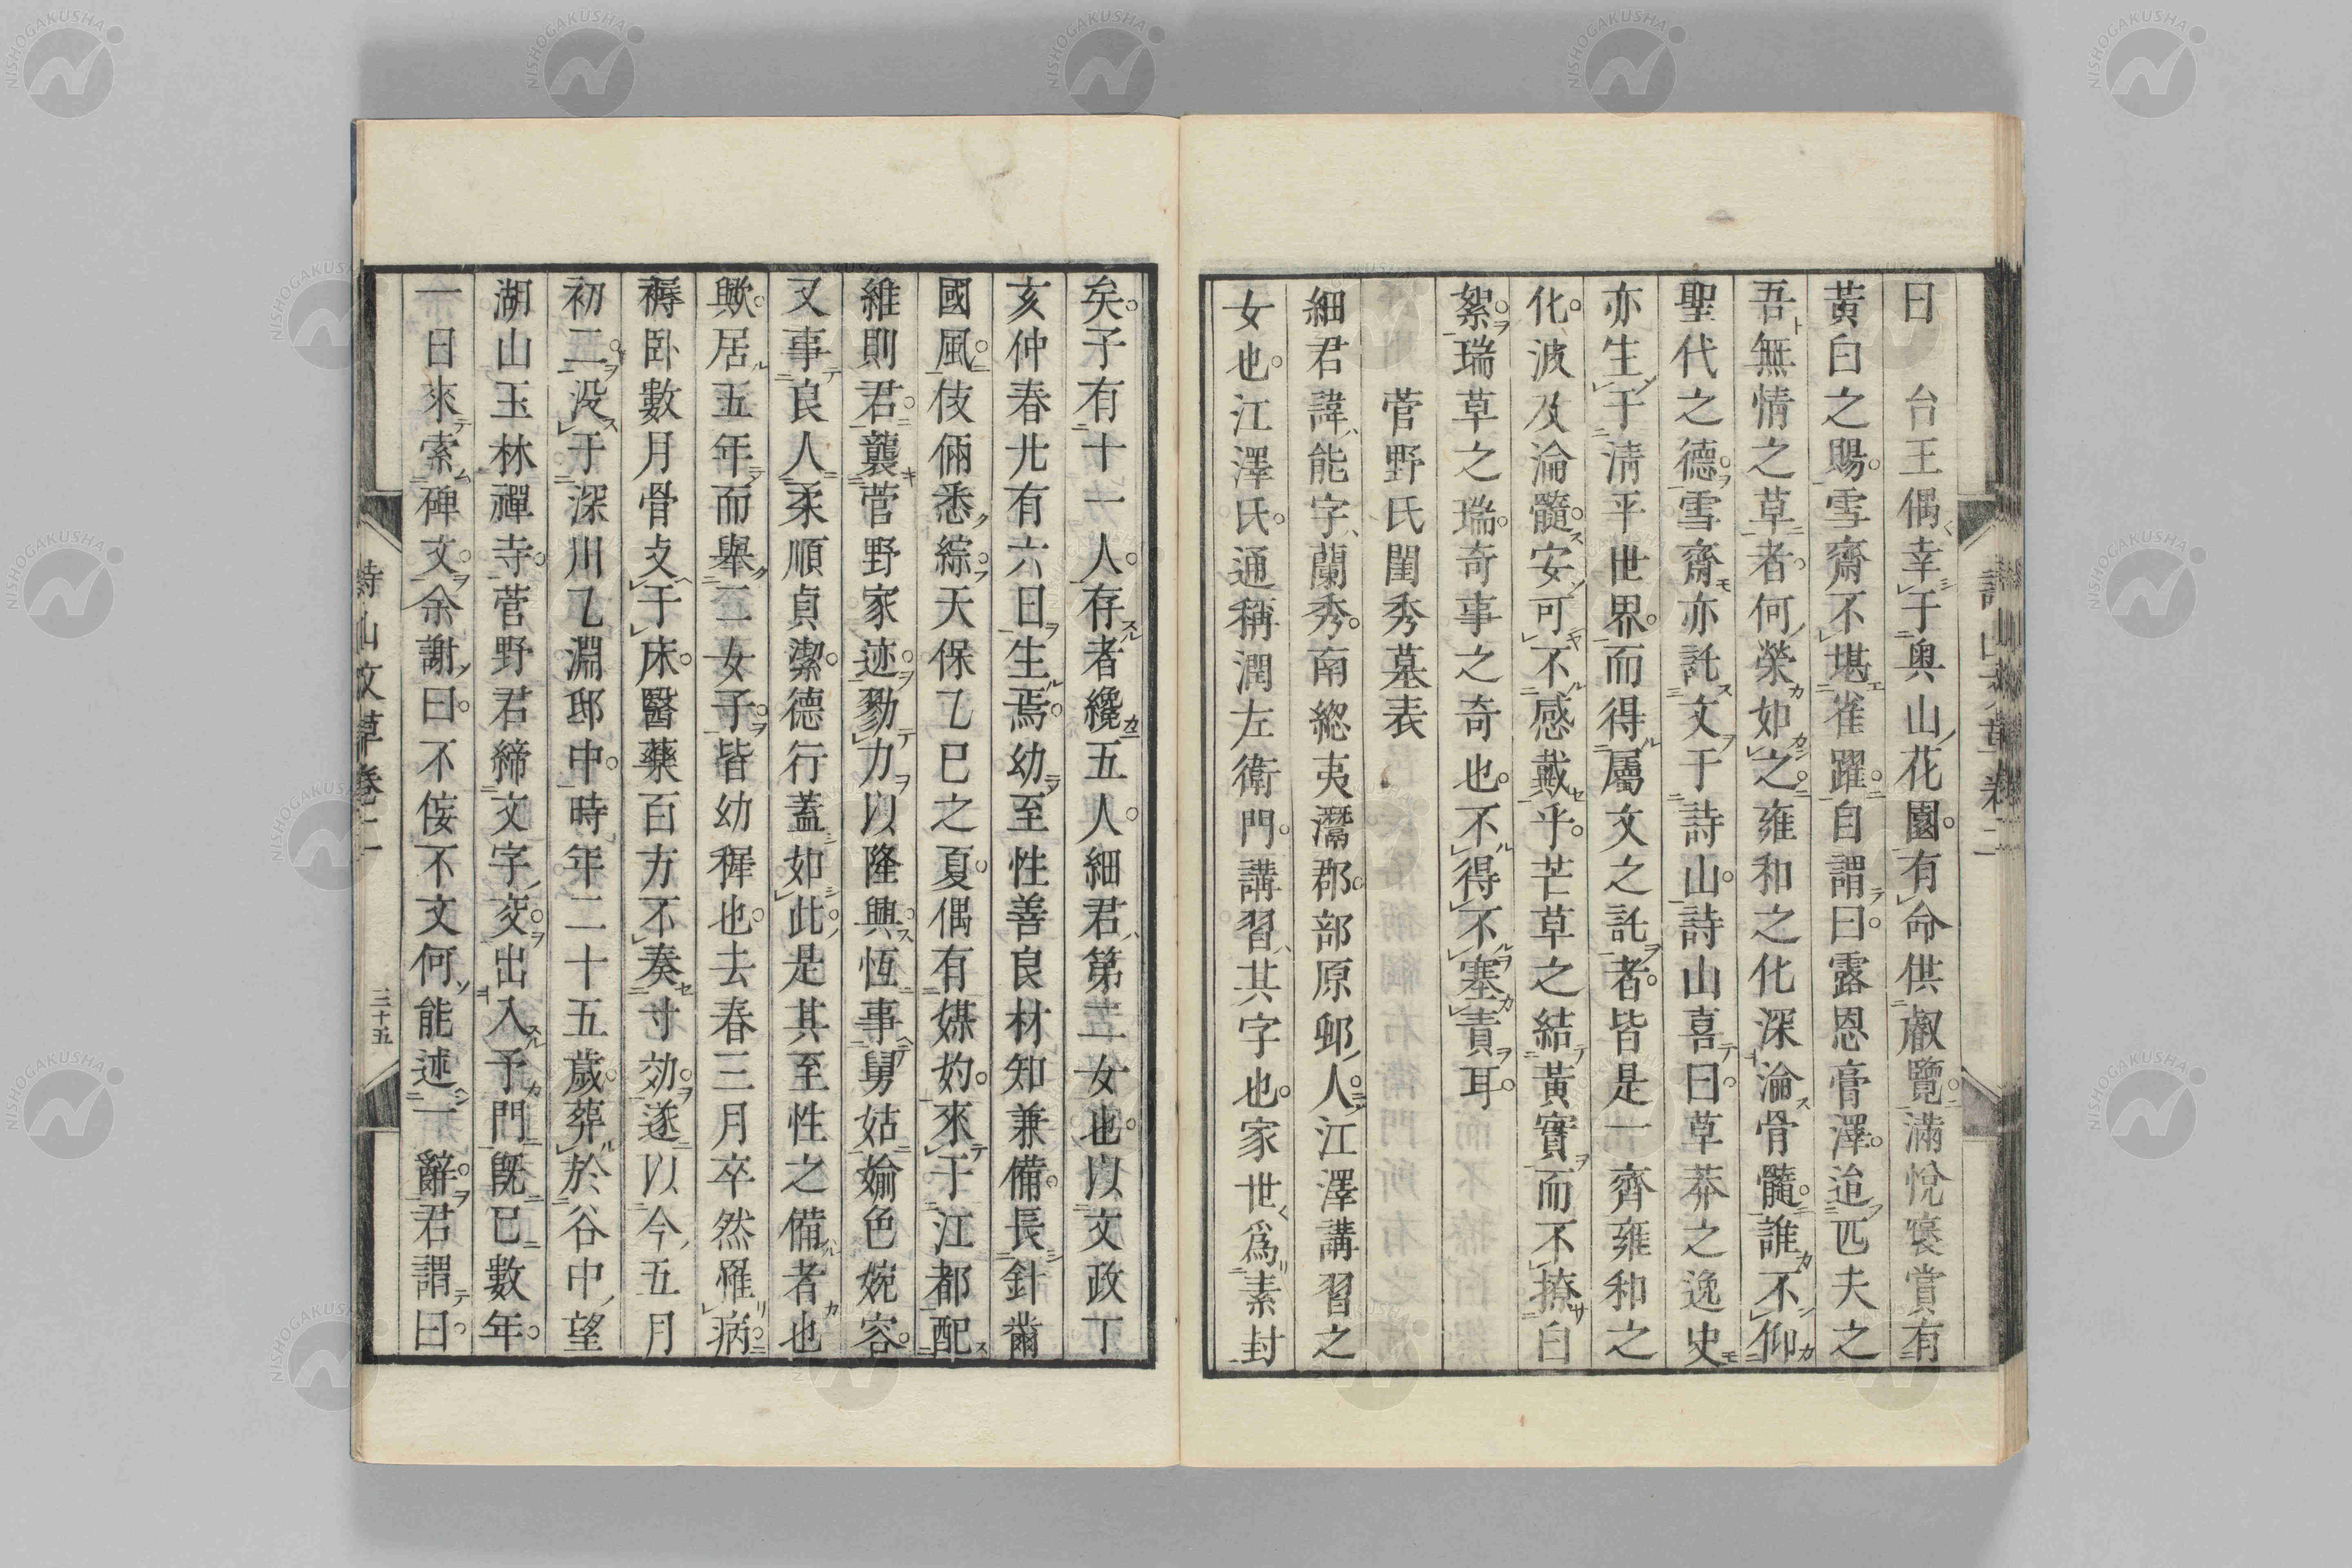 日　台王偶幸于奥山花園有命供叡覽滿悅襃賞有
黃白之賜雪齋不堪雀躍自謂曰露恩膏澤迨匹夫之
吾無情之草者何榮如之雍和之化深淪骨髓誰不仰
聖代之德雪齋亦託文于詩山詩山喜曰草莽之逸史
亦生于淸平世界而得屬文之託者皆是一齊雍和之
化波及淪髓安可不感戴乎芒草之結黃實而不撩白
絮瑞草之瑞奇事之奇也不得不塞責耳
菅野氏閨秀墓表
細君諱能字蘭秀南總夷灊郡部原鄕人江澤講習之
女也江澤氏通稱潤左衛門講習其字也家世爲素封
矣子有十一人存者纔五人細君第二女也以文政丁
亥仲春廿有六日生焉幼至性善良材知兼備長針黹
國風伎倆悉綜天保乙巳之夏偶有媒妁來于江都配
維則君襲菅野家迹勠力以隆興恆事舅姑婾色婉容
又事良人柔順貞潔德行蓋如此是其至性之備者也
歟居五年而舉二女子皆幼穉也去春三月卒然罹病
褥臥數月骨支于床醫藥百方不奏寸効遂以今五月
初二沒于深川乙淵邸中時年二十五歲葬於谷中望
湖山玉林禪寺菅野君締文字交出入予門旣已數年
一日來索碑文余謝曰不侫不文何能述一辭君謂曰
詩山文草卷二
三十五